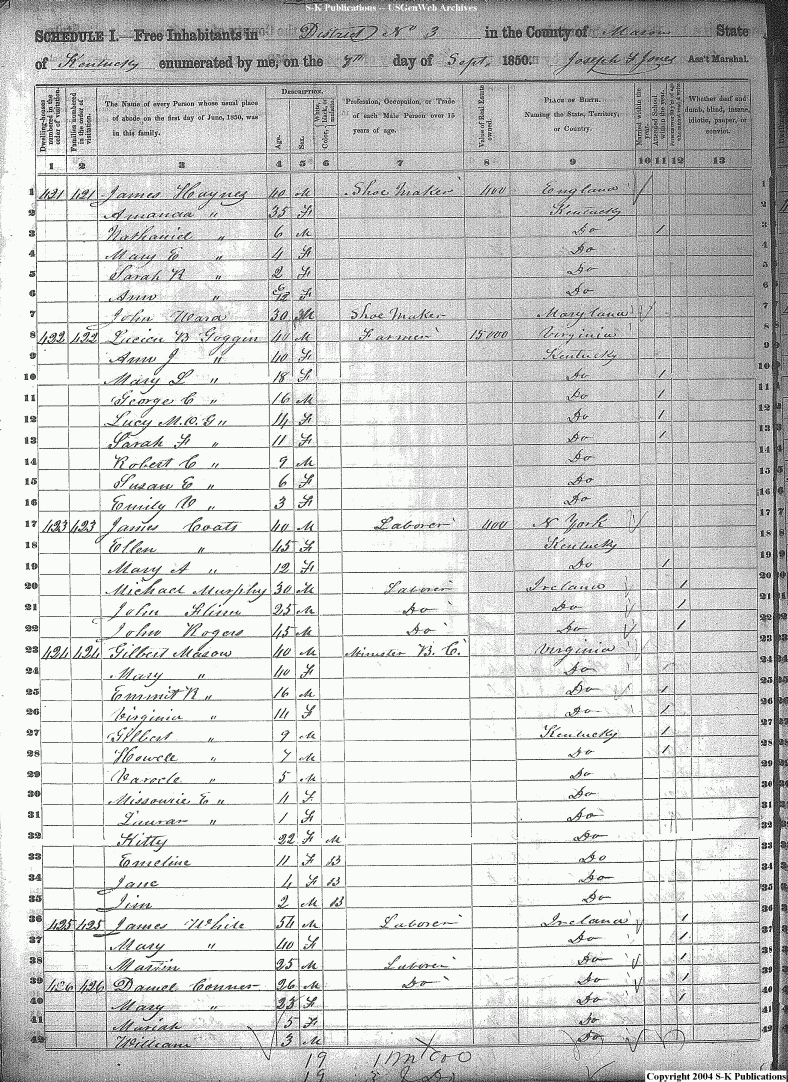 S-K Publications -- USGenWeb Archives
SCHEDULE I.—Free Inhabitants in District No 3 in the County of Mason State
of Kentucky enumerated by me, on the 9th day of Sept, 1850. Joseph F Jones Ass't Marshal.
Dwelling-houses numbered in the order of visitation.
Families numbered in the order of visitation.
The Name of every Person whose usual place of abode on the first day of June, 1850, was in this family.
DESCRIPTION.
Age.
Sex.
White, black, or mulatto. Color,
Profession, Occupation, or Trade of each Male Person over 15 years of age.
Value of Real Estate owned.
PLACE OF BIRTH. Naming the State, Territory, or Country.
Married within the year.
Attended School within the year.
Whether deaf and dumb, blind, insane, idiotic, pauper, or convict.
1 2 3 4 5 6 7 8 9 10 11 12 13
1 421 421 James Haynes 40 M Shoe Maker 400 England 1
2 Amanda " 35 F Kentucky 2
3 Nathaniel " 6 M Do 1 3
4 Mary E " 4 F Do 4
5 Sarah R " 2 F Do 5
6 Ann " 6/12 F Do 6
7 John Ward 30 M Shoe Maker Maryland 7
8 422 422 Lucien B Goggin 44 M Farmer 15000 Virginia 8
9 Ann J " 40 F Kentucky 9
10 Mary L " 18 F Do 1 10
11 George C " 16 M Do 1 11
12 Lucy M.O.G " 14 F Do 1 12
13 Sarah F " 11 F Do 1 13
14 Robert C " 9 M Do 14
15 Susan E " 6 F Do 15
16 Emily V " 3 F Do 16
17 423 423 James Coats 40 M Laborer 400 N York 17
18 Ellen " 45 F Kentucky 18
19 Mary A " 12 F Do 1 19
20 Michael Murphy 30 M Laborer Ireland 1 20
21 John 25 M Do Do 1 21
22 John Rogers 45 M Do Do 1 22
23 424 424 Gilbert Mason 40 M Minister B. C. Virginia 23
24 Mary " 40 F Do 24
25 Emmit R " 16 M Do 1 25
26 Virginia " 14 F Do 1 26
27 Gilbert " 9 M Kentucky 1 27
28 Howele " 7 M Do 1 28
29 " 5 M Do 29
30 Missourie E " 4 F Do 30
31 " 1 F Do 31
32 Kitty 22 F M Do 32
33 Emeline 11 F B Do 33
34 Jane 4 F B Do 34
35 Jim 2 M B Do 35
36 425 425 James White 54 M Laborer Ireland 1 36
37 Mary " 40 F Do 1 37
38 Martin 25 M Laborer Do 1 38
39 426 426 Daniel Conner 26 M Do Do 1 39
40 Mary " 23 F Do 1 40
41 Mariah 5 F Do 41
42 William 3 M Do 42
19
Copyright 2004 S-K Publications